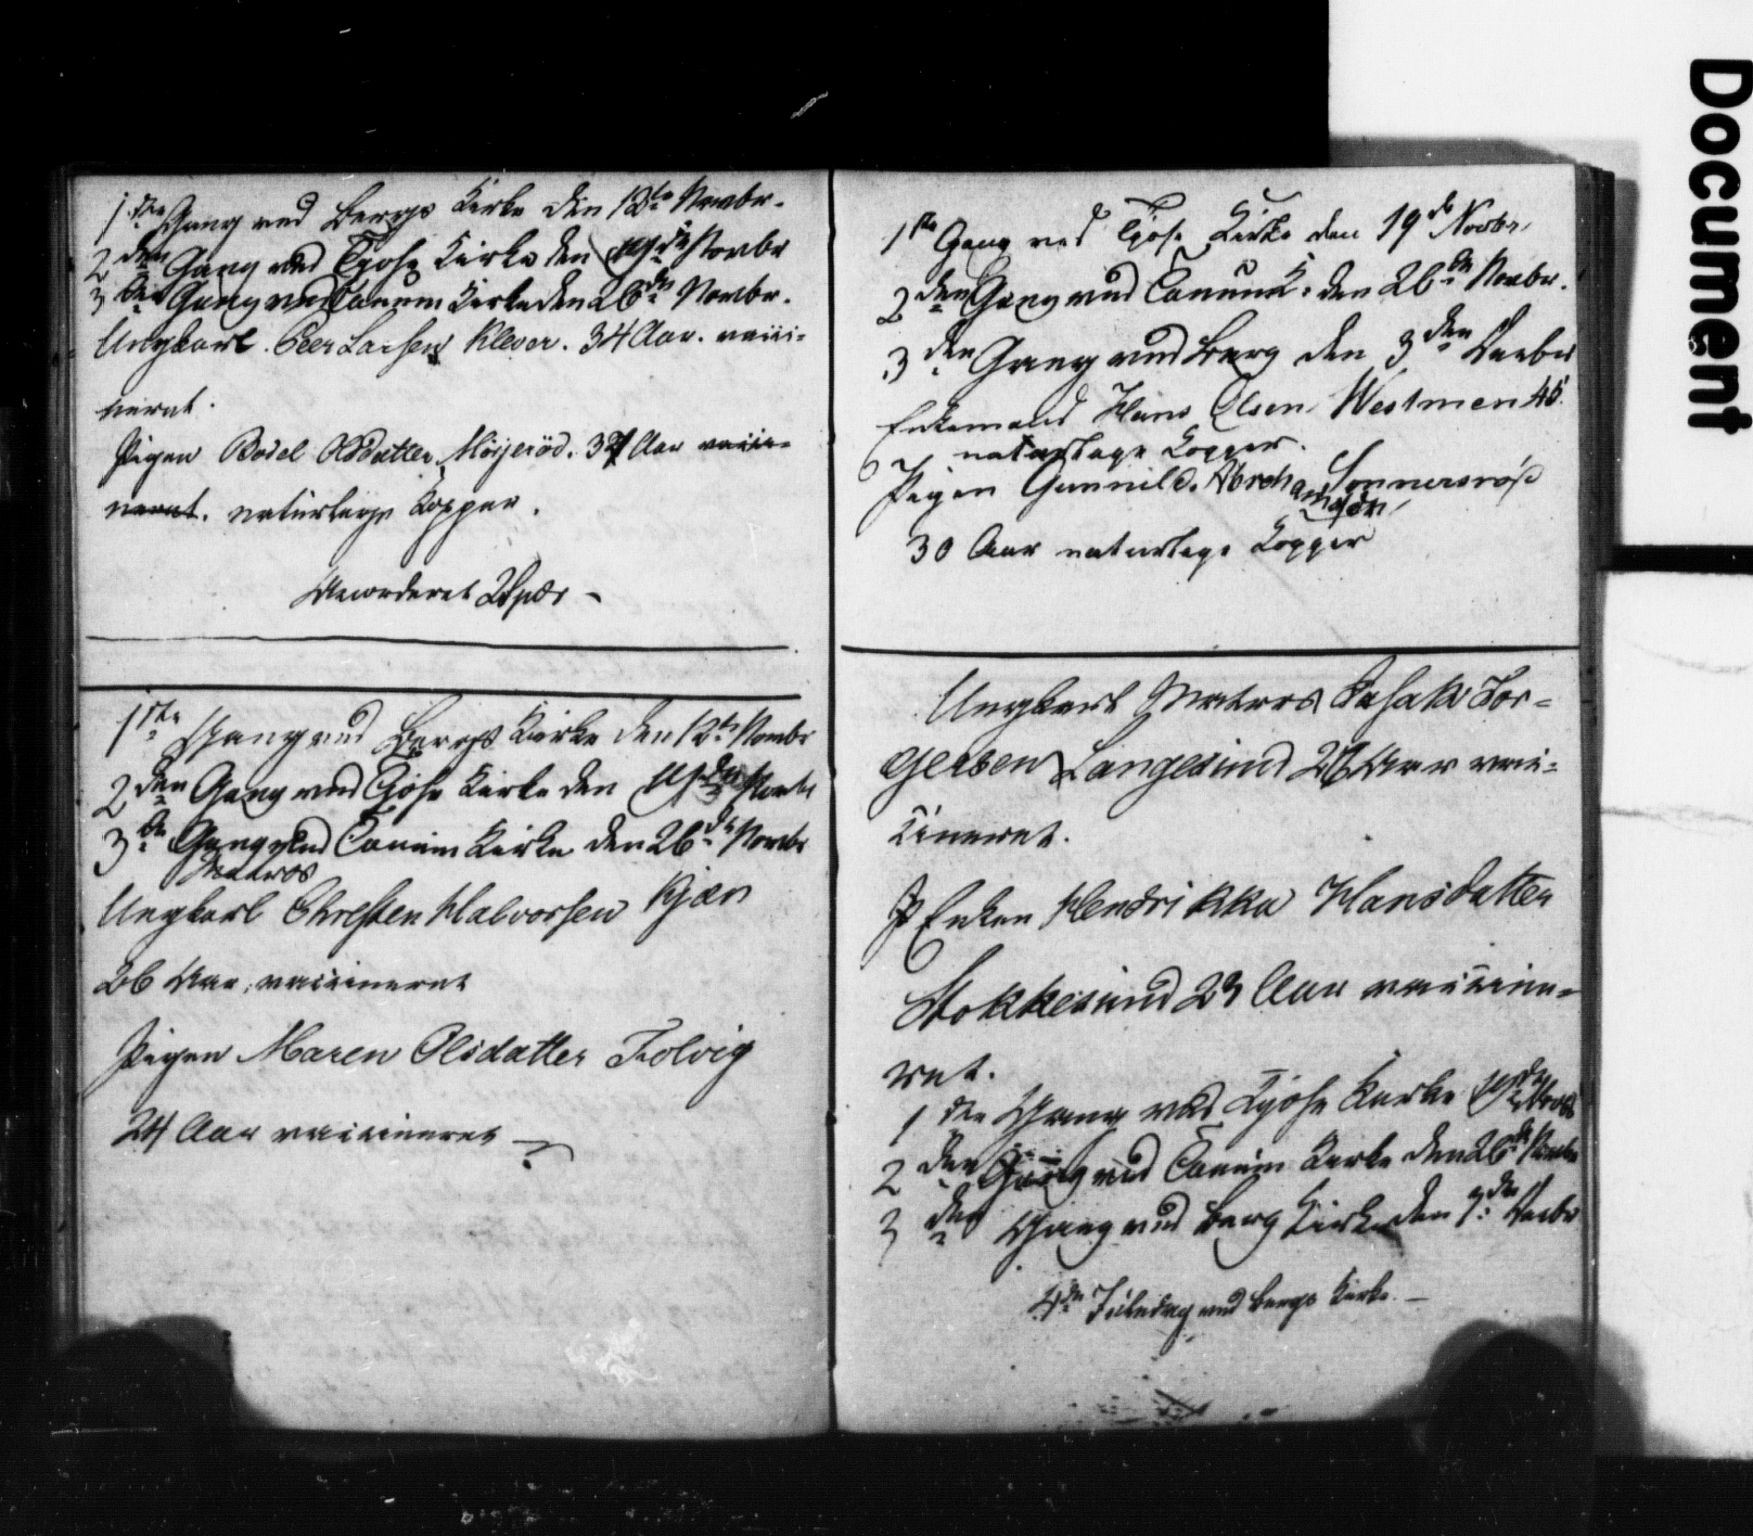 1ste Gang ved Bergs Kirke den 12te Novbr.
2den Gang ved Tjose Kirke den 19de Novbr
3die Gang ved Tanum Kirke den 26de Novbr.
Ungkarl Peer Larsen Klever. 34 Aar. vacci-
neret.
Pigen Bodel Olsdatter 37 Aar vacci-
neret. naturlige Kopper.
Accorderet 2 Spdr
1ste Gang ved Bergs Kirke den 12te Novbr
2den Gang ved Tjose Kirke den 19de Novbr
3die Gang ved Tanum Kirke den 26de Novbr
Matros
Ungkarl Christen Halvorsen Kjær
26 Aar, vaccineret
Pigen Maren Olsdatter Folvig
24 Aar vaccineret
1ste Gang ved Tjose Kirke den 19de Novbr.
2den Gang ved Tanum K. den 26de Novbr.
3den Gang ved Berg den 3den Decbr
Enkemand Hans Olsen Westmen 45
naturlige Kopper.
Pigen Gunnild Abraham
30 Aar naturlige Kopper
Ungkarl Matros Isak Tor-
gersen Langesund Aar vac-
cineret.
Enken Hendrikka Hansdatter
Stokkesund 23 Aar vaccine-
ret.
1ste Gang ved Tjose Kirke 19de Novbr
2den Gang ved Tanum Kirke den 26de Novbr
3den Gang ved Berg Kirke den 3den Decbr
4de Juledag ved Bergs Kirke.
Document